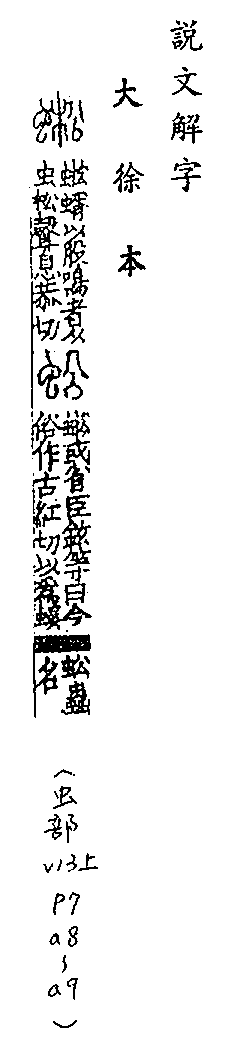 説文解字
大徐本
蜙 蜙蝑以股鳴者从虫松聲息恭切 蚣 蜙或省臣鉉等曰今俗作古紅切以爲蜈蚣蟲名
(虫部 v13上 P7 a8~a9)